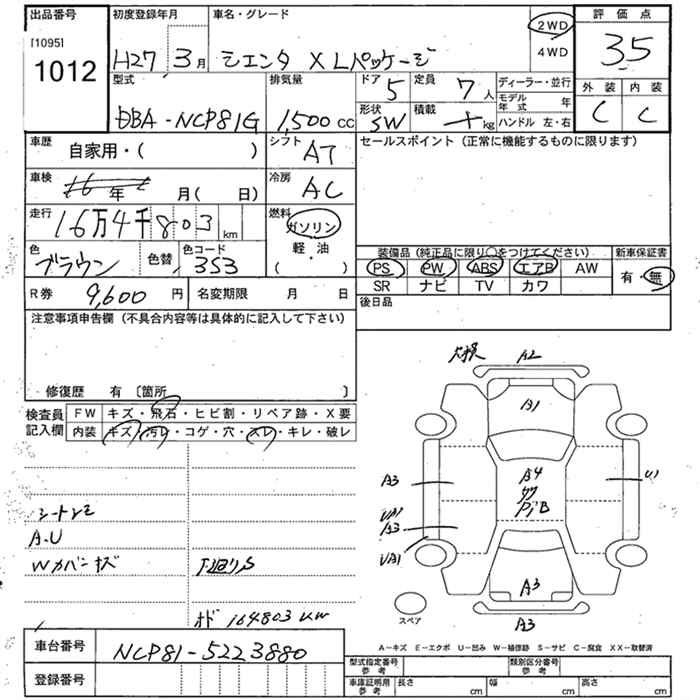 出品番号 初度登録年月 車名・グレード 2WD 評価点
[1095]
1012
H27 3月 シエンタ X Lパッケージ 4WD 3.5
型式 排気量 ドア 5 定員 7人 ディーラー・並行 外装 内装
モデル年式 年
DBA-NCP81G 1,500cc 形状 SW 積載 kg ハンドル 左・右 C C
車歴 自家用・( ) シフト AT セールスポイント(正常に機能するものに限ります)
車検 16年 月(日) 冷房 AC
走行 16万4千803km 燃料 ガソリン
軽・油
装備品(純正品に限り○をつけてください) 新車保証書
色 ブラウン 色替 色コード 3S3 ( ) PS PW ABS エアB AW 有・無
SR ナビ TV カワ
R券 9,600円 名変期限 月 日 後日品
注意事項申告欄(不具合内容等は具体的に記入して下さい)
修復歴 有〔箇所 〕
検査員記入欄 FW キズ・飛石・ヒビ割・リペア跡・X要
内装 キズ・汚レ・コゲ・穴・スレ・キレ・破レ
A2
B1
A3 A4 U1
PiB
UA1
A3
UA1
A3
A3
スペア
A.U
Wカバーキズ 下廻りS
164803km
A-キズ E-エクボ U-凹み W-補修跡 S-サビ C-腐食 XX-取替済
車台番号 NCP81-5223880
型式指定番号参考 類別区分番号参考
登録番号 車庫証明用参考 長さ cm 幅 cm 高さ cm